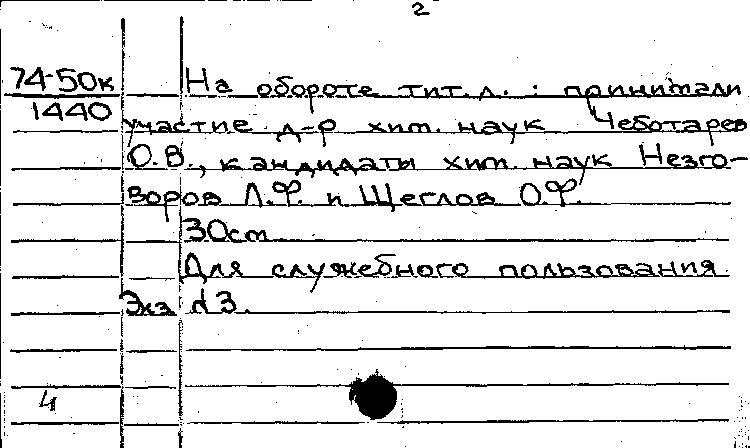 2
74-50к На обороте тит.л. : принимали
1440 участие д-р хим. наук Чеботарев
О.В., кандидаты хим. наук Незго-
воров Л.Ф. и Щеглов О.Ф.
30см
Для служебного пользования
Экз №3.
4